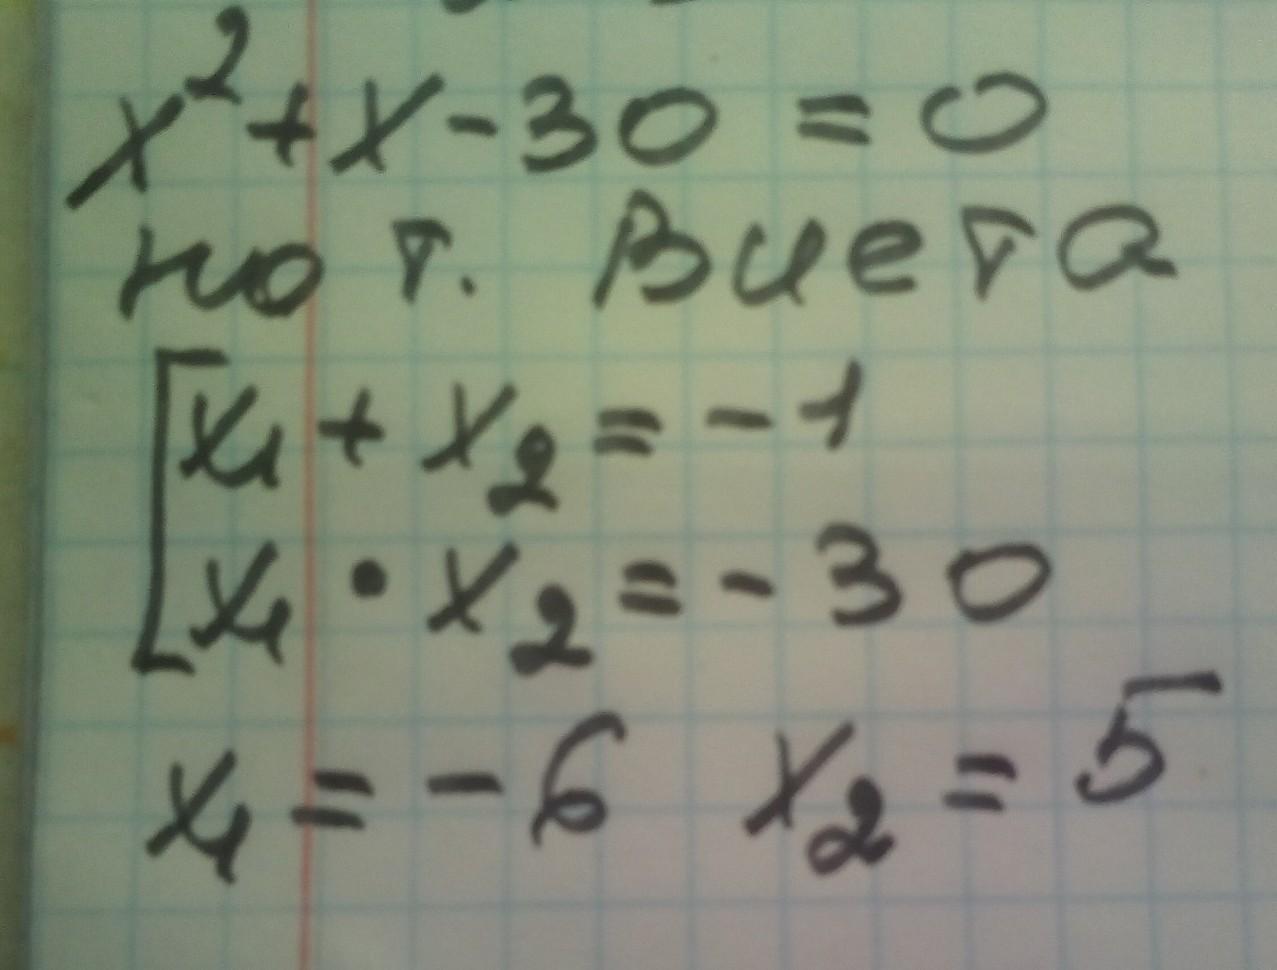 x² + x - 30 = 0
по т. Виета
[x₁ + x₂ = -1
x₁ · x₂ = -30
x₁ = -6 x₂ = 5